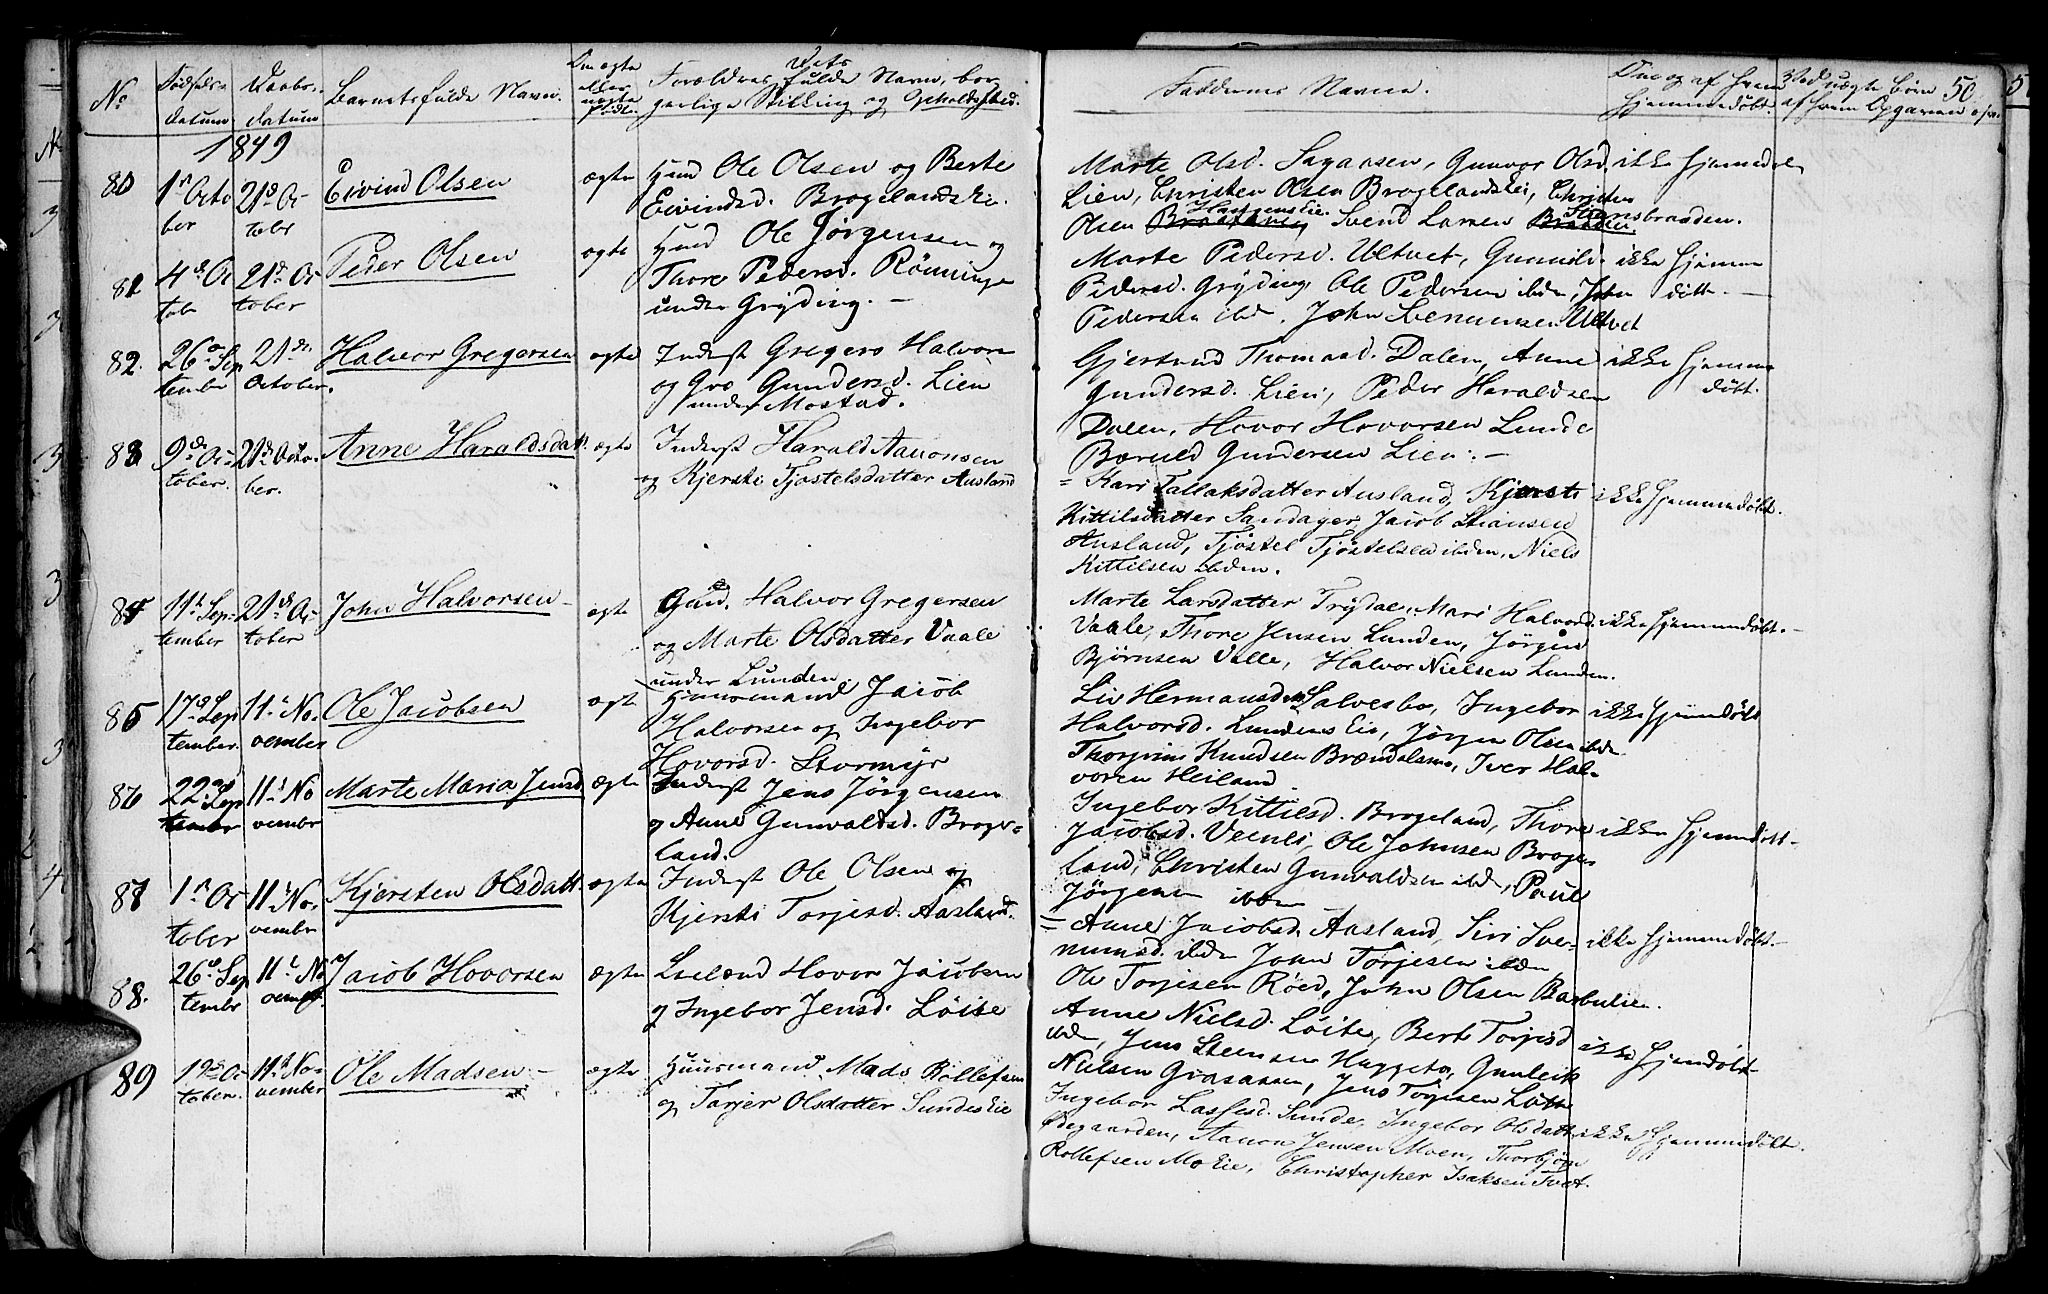 No
Fødsels-
datum
Daabs-
datum
Barnets fulde Navn.
Om ægte
eller
uægte
født.
Dets
Forældres fulde Navn, bor-
gerlige Stilling og Opholdssted.
Faddernes Navne.
Om og af hvem
hjemmedøbt.
Ved uægte børn
af hvem Opgaven
50
1849
80
1ste Octo
ber
21de Oc
tobr
Eivind Olsen
ægte
Huusmand Ole Olsen og Berte
Eivindsd. Brogelands Eie.
Marte Olsd. Lien, Gunvor Olsd.
Lien, Christen Olsen Brogelands Eie, Christen
Olsen Svend Larsen
ikke hjemmed.
81
4de Oc
tob
21de Oc
tober
Peder Olsen
ægte
Ole Jørgensen og
Thore Pedersd. Rönninge
under Gryding. –
Marte Pedersd. Ultvet, Gunnild
Pedersd. Gryding, Ole Pedersen ibden, John
Pedersen ibd. John Svenumsen Ultvet
ikke hjemme
døbt. –
82.
26de Sep
tember
21de
October.
Halvor Gregersen
ægte
Inderst Gregers Halvors
og Gro Gundersd. Lien
under Mostad.
Gjertrud Thomasd. Dalen, Anne
Gundersd. Lien, Peder Haraldsen
Dalen, Hovor Hovorsen Lunde
Bæruld Gundersen Lien. –
ikke hjemme
døbt.
83
9de Oc
tober.
21de Octo
ber.
Anne Haraldsdatt.
ægte
Inderst Harald Aanonsen
og Kjersti Tjøstelsdatter Ausland
Kari Tallaksdatter Ausland, Kjersti
Kittilsdatter Sandager, Jacob Stiansen
Ausland, Tjøstel Tjøstelsen ibden, Niels
Kittilsen ibden.
ikke hjemmedøbt.
84
11te Sep-
tember
21de Oc
tober
John Halvorsen
ægte
Gmd. Halvor Gregersen
og Marte Olsdatter Vaale
under Lunden
Marte Larsdatter Trydal, Mari Halvorsd.
Vaale, Thore Jensen Lunden, Jørgen
Bjørnsen Valle, Halvor Nielsen Lunden.
ikke hjemmedøbt. –
85
17de Sep
tember.
11te No-
vember
Ole Jacobsen
ægte
Huusmand Jacob
Halvorsen og Ingebor
Hovorsd. Stormyr
Liv Hermansd. Salvesbo, Ingebor
Halvorsd. Lundens Eie, Jørgen Olsen ibden
Thorjrim Knudsen Brændalsmo, Iver Hal-
vorsen Heiland.
ikke hjemdøbt
86
22de Sep
tembr
11te No
vembr
Marte Maria Jensd.
ægte
Inderst Jens Jørgensen
og Anne Gunvaldsd. Broge-
land.
Ingebor Kittilsd. Brogeland, Thore
Jacobsd. Veenli, Ole Johnsen Broge
land, Christen Gunvaldsen ibden, Poul
Jørgensen ibden
ikke hjemmedøbt –
87
1ste Oc
tober
11te No-
vembr
Kjersten Olsdatt.
ægte
Inderst Ole Olsen og
Kjersti Torjesd. Aasland.
Anne Jacobsd. Ausland, Siri Sve-
numsd. ibden John Torjesen ibden,
Ole Torjesen Röed, John Olsen Barbulien.
ikke hjemmedøbt. –
88.
26de Sep
tembr
11te No
vembr.
Jacob Hovorsen
ægte
Hovor Jacobsen
og Ingebor Jensd. Löite
Anne Nielsd. Löite, Berte Torjesd
ibd, Jens Steensen Huggeto, Gunleik
Nielsen Grasaasen, Jens Torjesen Löite
ikke hjemdøbt –
89
19de Oc
tober.
11te No-
vember
Ole Madsen –
ægte
Huusmand Mads Rollefsen
og Tarjer Olsdatter Sundes Eie
Ingebor Lassesd. Sunde, Ingebor Olsdatter
Ødegaarden, Aanon Jensen Moen, Thorbjørn
Rollefsen Mo Eie, Christopher Isaksen Tvet.
ikke hjemmedøbt.